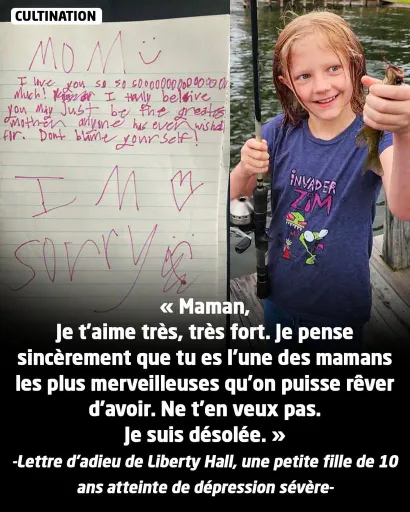 CULTINATION
MOM
I love you so so sooooooooooooooo
much! I truly beleive
you may just be the greatest
mother anyone has ever wished
for. Dont blame yourself!
I M
sorry
INVADER
ZIM
« Maman,
Je t'aime très, très fort. Je pense
sincèrement que tu es l'une des mamans
les plus merveilleuses qu'on puisse rêver
d'avoir. Ne t'en veux pas.
Je suis désolée. »
-Lettre d'adieu de Liberty Hall, une petite fille de 10
ans atteinte de dépression sévère-